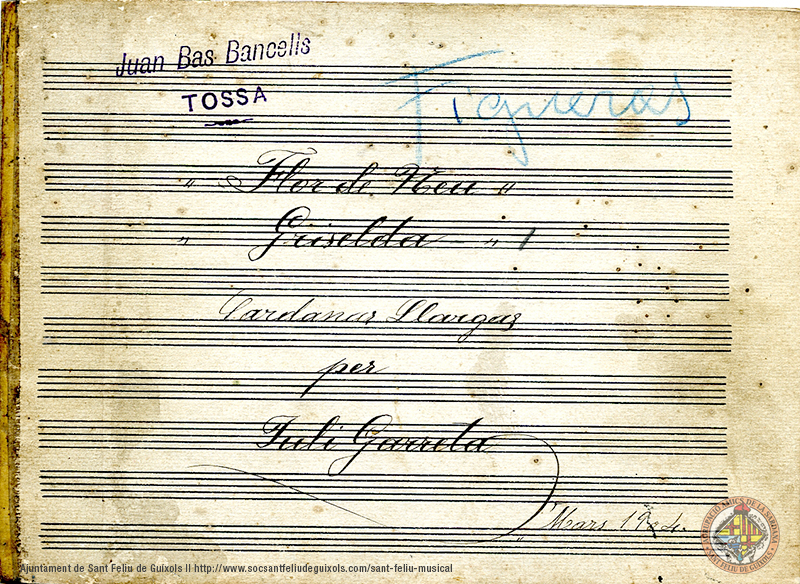 Juan Bas Bancells
TOSSA
Figueras
" Flor de Neu "
" Griselda " 1
Sardanas Llargas
per
Juli Garreta
Mars 1904.
AGRUPACIÓ AMICS DE LA SARDANA
SANT FELIU DE GUÍXOLS
Ajuntament de Sant Feliu de Guíxols II http://www.socsantfeliudeguixols.com/sant-feliu-musical